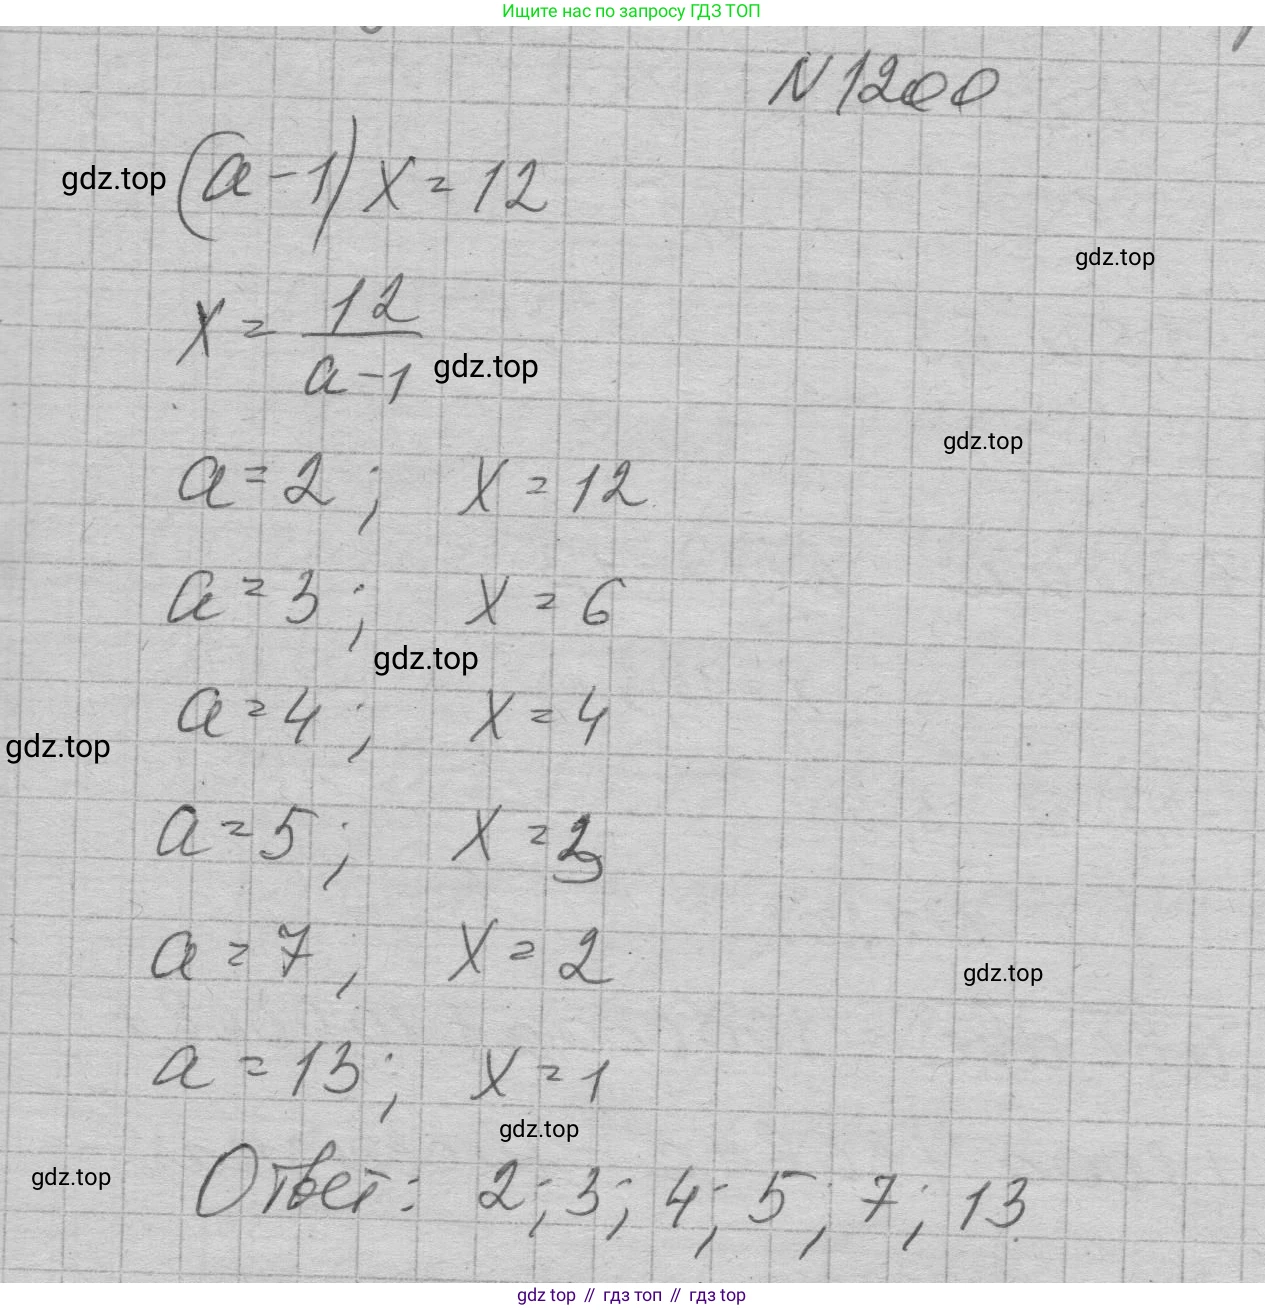 Ищите нас по запросу ГДЗ ТОП
N 1200
gdz.top (a-1) x = 12
gdz.top
x = 12/(a-1) gdz.top
gdz.top
a = 2; x = 12
a = 3; x = 6
gdz.top
a = 4; x = 4
gdz.top
a = 5; x = 3
a = 7, x = 2
gdz.top
a = 13; x = 1
gdz.top
gdz.top
Ответ: 2; 3; 4; 5; 7; 13.
gdz top // гдз топ // гдз top